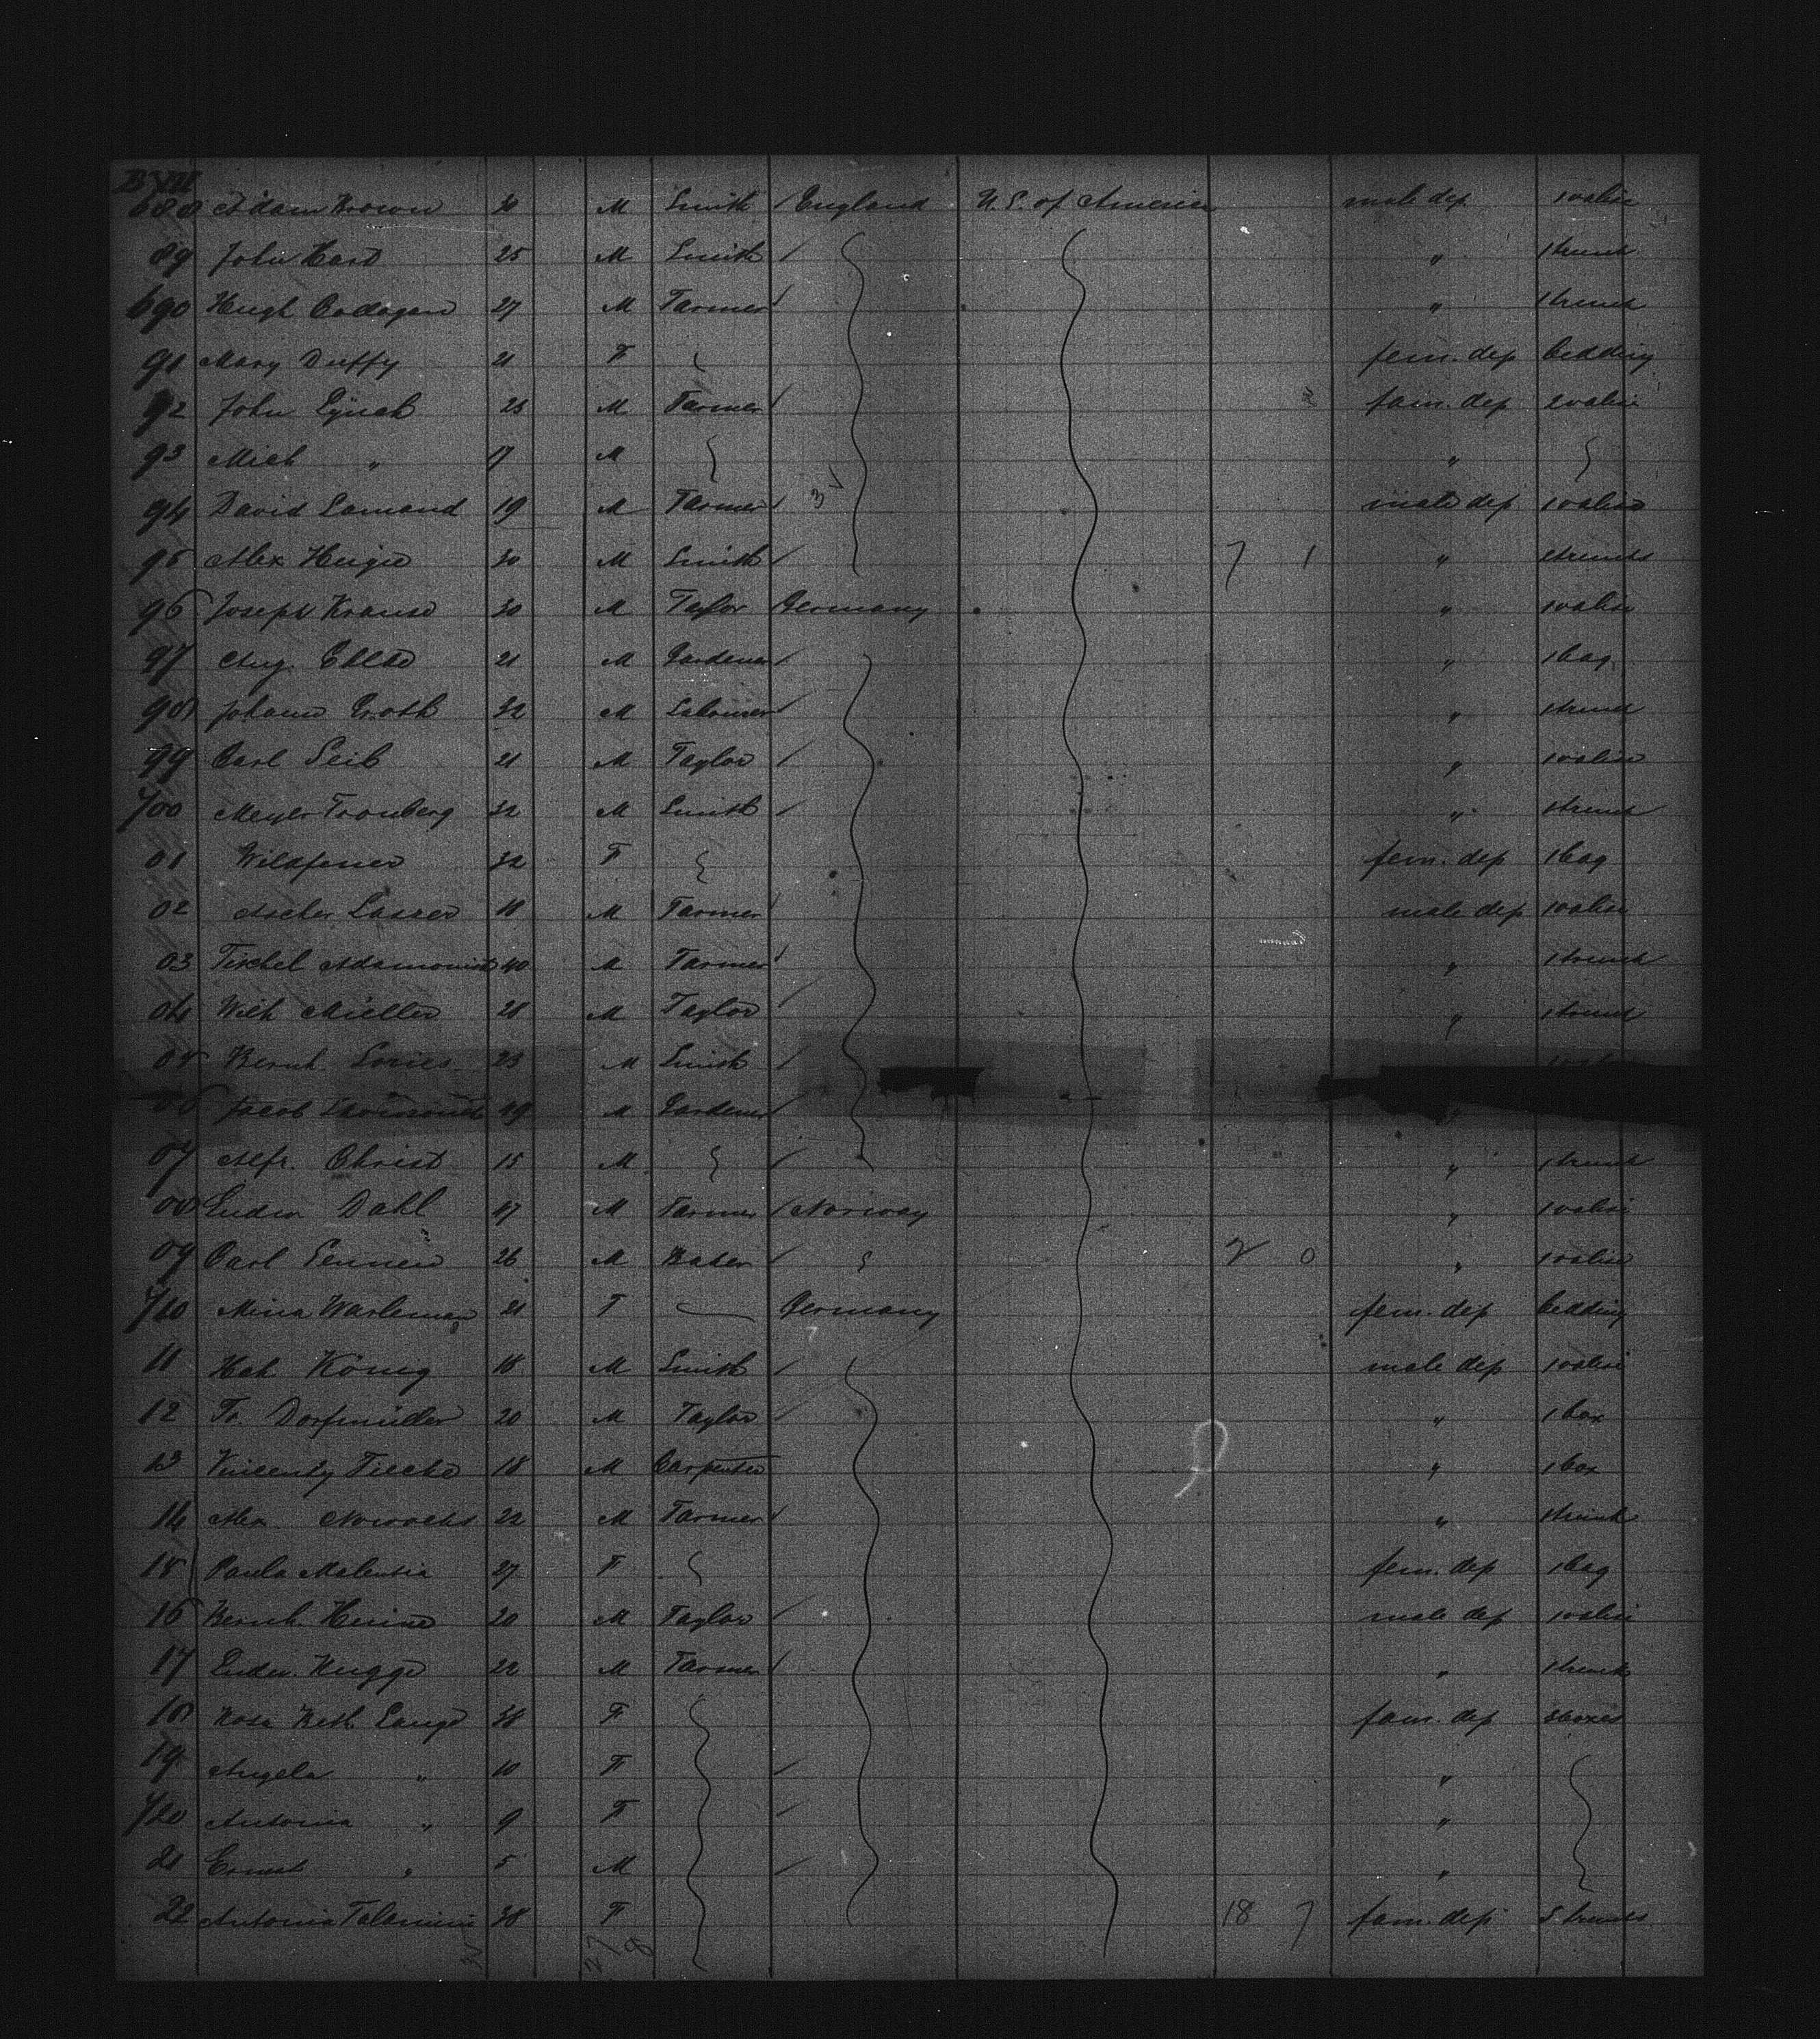 B VII
688 Adam Brown 30 M Smith / England U.S. of America male dep 1 valise
89 John Hart 25 M Smith / " 1 trunk
690 Hugh 27 M Farmer / " 1 trunk
91 Mary Duffy 21 F fem. dep bedding
92 John Lynch 25 M Farmer / fam. dep 2 valise
93 Mich " 17 M "
94 David 19 M Farmer / 3 male dep 1 valise
95 Alex 30 M Smith / 7 1 " 2 trunks
96 Joseph Krause 30 M Taylor Germany " 1 valise
97 Aug. 21 M Gardener / " 1 bag
98 Johann Groth 32 M / " 1 trunk
99 Carl Seib 21 M Taylor / " 1 valise
700 Meyer Fronberg 32 M Smith / " 1 trunk
01 32 F fem. dep 1 bag
02 Ascher 18 M Farmer / male dep 1 valise
03 Fischel 40 M Farmer / " 1 trunk
04 Wilh Müller 28 M Taylor / " 1 trunk
05 Bernh. 23 M Smith /
06 Jacob 49 M Gardener / "
07 Alfr. Christ 15 M / " 1 trunk
08 Dahl 17 M Farmer / Norway " 1 valise
09 Carl 26 M Baker / 2 0 " 1 valise
710 Mina 21 F Germany fem. dep bedding
11 König 18 M Smith / male dep 1 valise
12 Fr. Dorfmüller 20 M Taylor / " 1 box
13 18 M Carpenter " 1 box
14 Alex 22 M Farmer / " 1 trunk
15 Paula 27 F fem. dep 1 bag
16 Bernh. 20 M Taylor / male dep 1 valise
17 22 M Farmer / " 1 trunk
18 Rosa Lange 38 F fam. dep 3 boxes
19 Angela " 10 F / "
720 Antonia " 9 F / "
21 Ernst " 5 M / "
22 Antonia 38 F 18 7 fam. dep 5 trunks
35 27 8